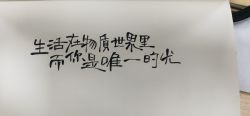 生活在物质世界里
而你是唯一的光